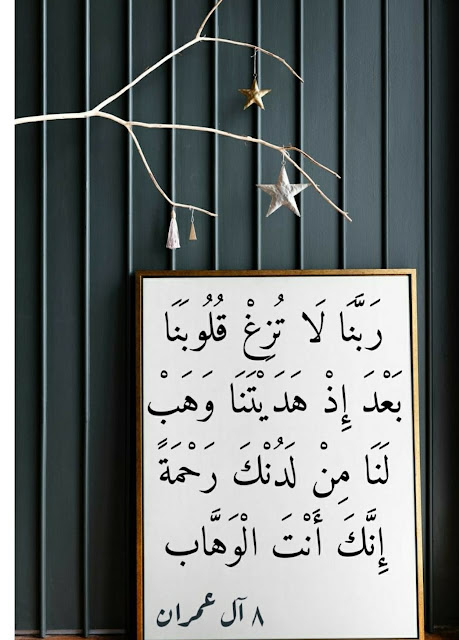 رَبَّنَا لَا تُزِغْ قُلُوبَنَا
بَعْدَ إِذْ هَدَيْتَنَا وَهَبْ
لَنَا مِنْ لَدُنْكَ رَحْمَةً
إِنَّكَ أَنْتَ الْوَهَّاب
٨ آل عمران